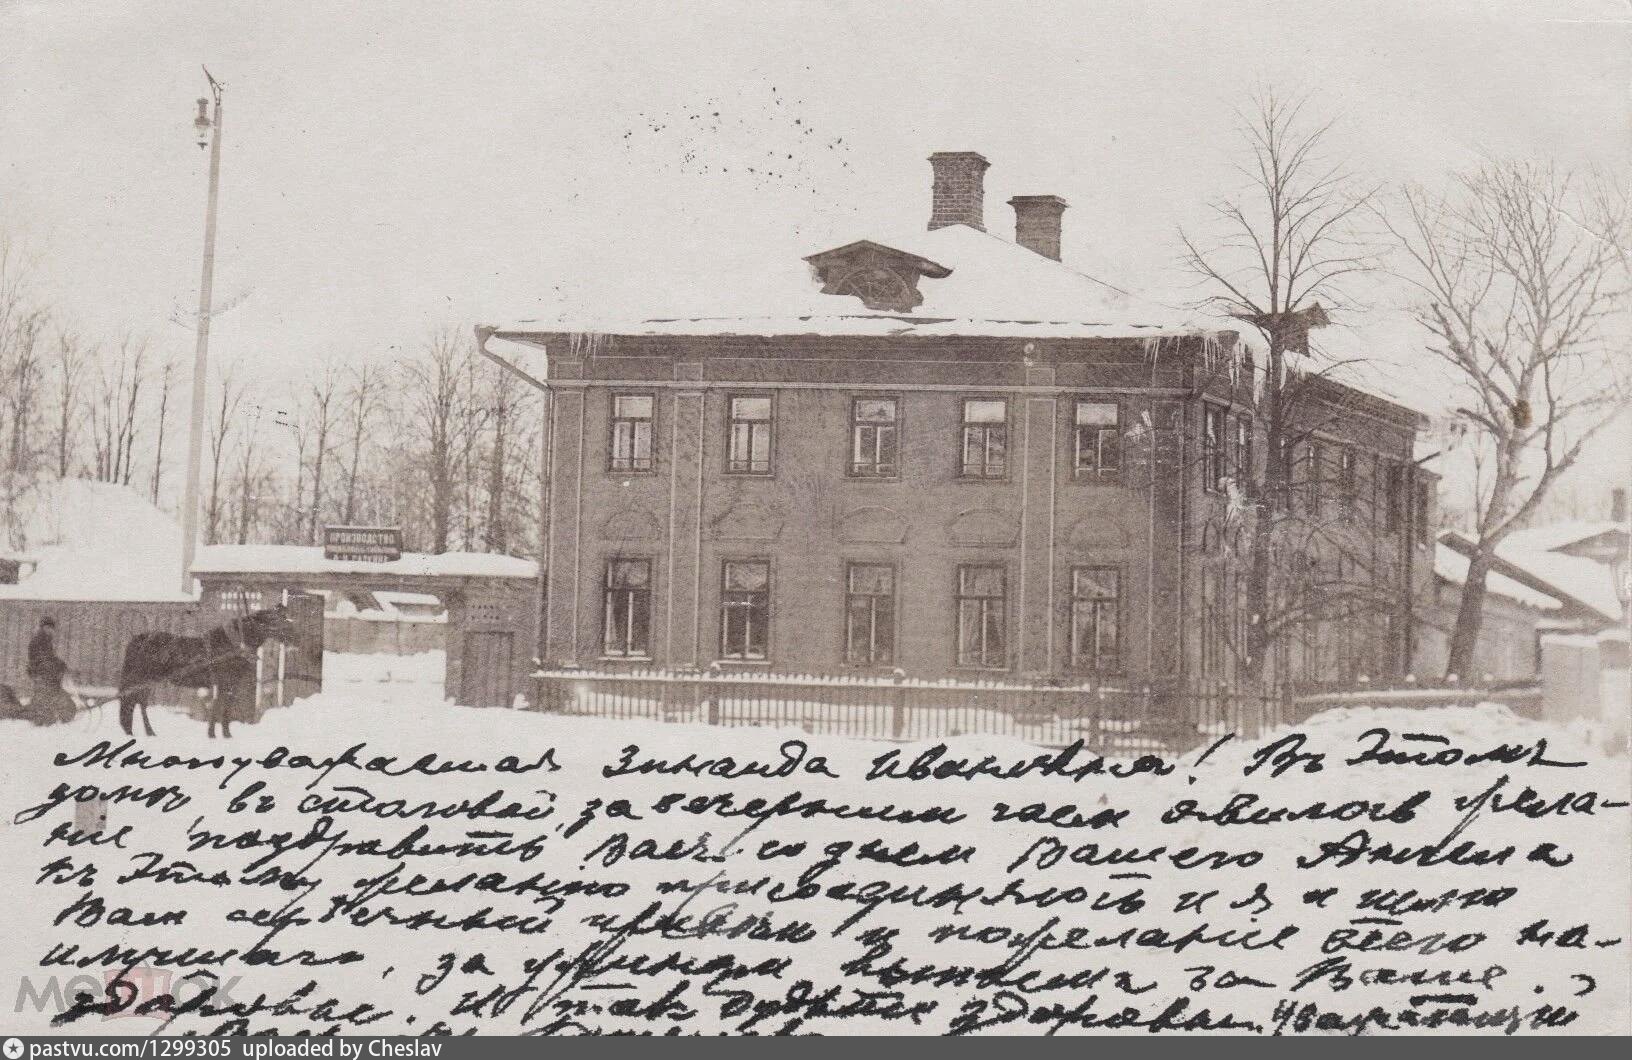 ПРОИЗВОДСТВО
Многоуважаемая Зинаида Ивановна! Въ этомъ
доме, въ столовой, за вечернимъ чаем явилось жела-
ние поздравить Васъ со днем Вашего Ангела
къ этому желанию присоединяюсь и я и шлю
Вам сердечный привет и пожелание всего на-
илучшаго, за ужином выпьем за Ваше
здоровье. И так будьте здоровы.
мешок
pastvu.com/1299305 uploaded by Cheslav